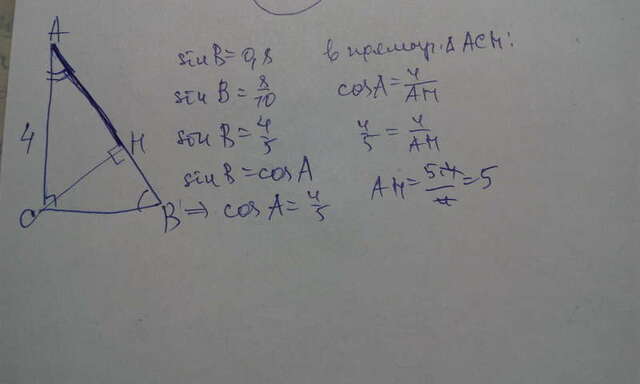 A
4
H
C
B
sin B = 0,8
sin B = 8/10
sin B = 4/5
sin B = cos A
=> cos A = 4/5
в прямоуг. Δ ACH:
cos A = 4/AH
4/5 = 4/AH
AH = 5·4/4 = 5